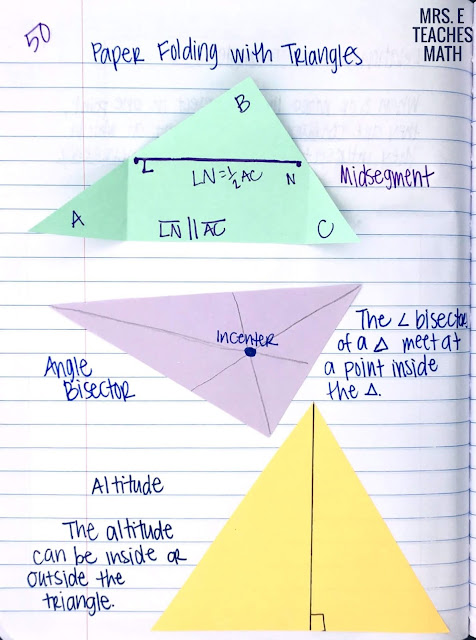 MRS. E
TEACHES
MATH
50
Paper Folding with Triangles
B
L
N
LN=½AC
Midsegment
A
LN || AC
C
Incenter
The ∠ bisectors
of a △ meet at
a point inside
the △.
Angle
Bisector
Altitude
The altitude
can be inside or
outside the
triangle.